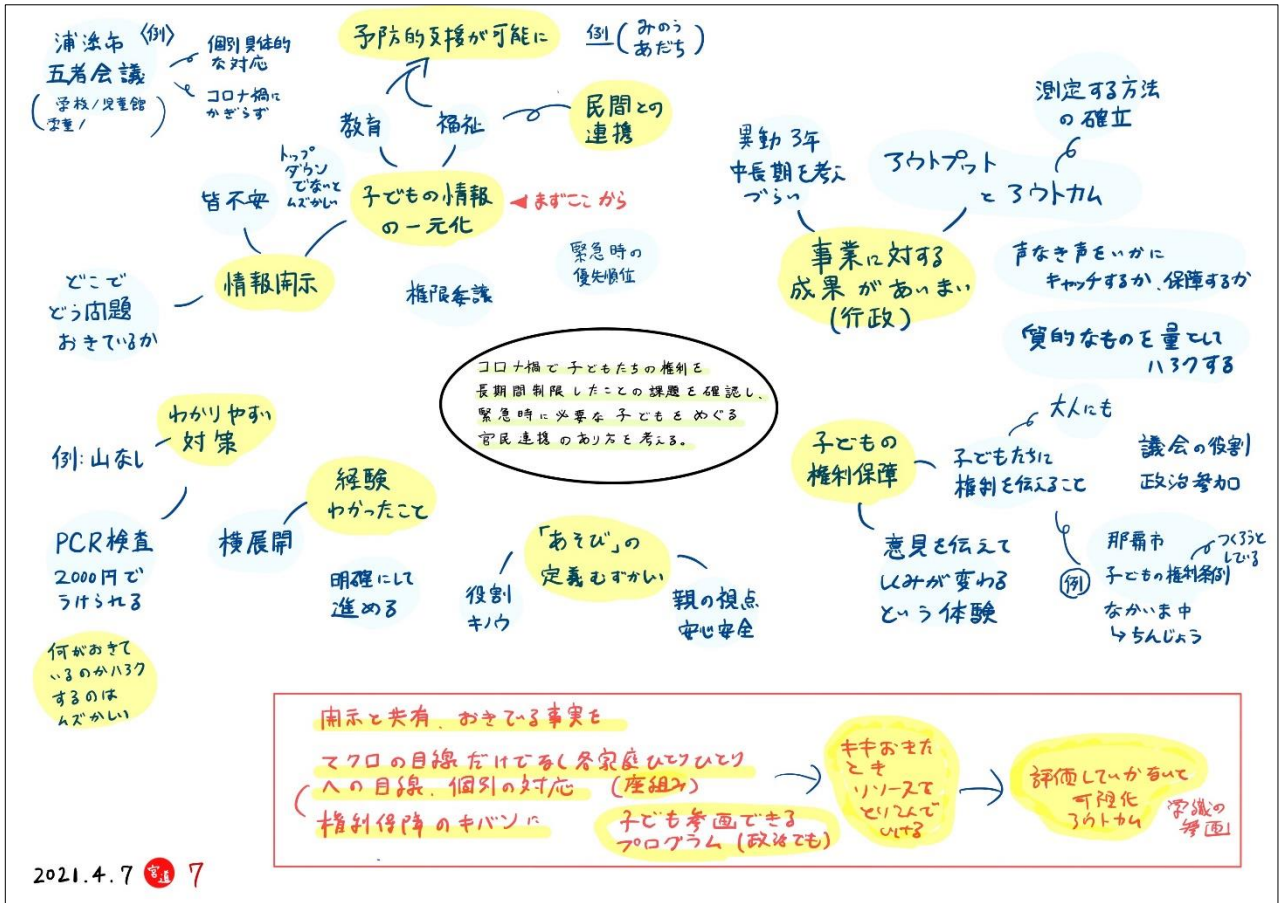 浦添市 〈例〉
五者会議
(学校/児童館
学童/ )
個別具体的
な対応
コロナ禍に
かぎらず
予防的支援が可能に
例 (みのう
あだち)
教育
福祉
民間との
連携
トップ
ダウン
でないと
ムズかしい
皆不安
子どもの情報
の一元化
◀まずここから
情報開示
どこで
どう問題
おきているか
権限委譲
緊急時の
優先順位
異動 3年
中長期を考え
づらい
アウトプット
と アウトカム
測定する方法
の確立
事業に対する
成果があいまい
(行政)
声なき声をいかに
キャッチするか、保障するか
質的なものを量として
ハアクする
コロナ禍で子どもたちの権利を
長期間制限したことの課題を確認し、
緊急時に必要な子どもをめぐる
官民連携のあり方を考える。
わかりやすい
対策
例:山なし
PCR検査
2000円で
うけられる
何がおきて
いるのかハアク
するのは
ムズかしい
経験
わかったこと
横展開
明確にして
進める
「あそび」の
定義むずかしい
役割
キノウ
親の視点
安心安全
子どもの
権利保障
子どもたちに
権利を伝えること
大人にも
議会の役割
政治参加
意見を伝えて
しくみが変わる
という体験
例
那覇市
子どもの権利条例
つくろうと
している
なかいま中
↳ちんじょう
開示と共有、おきている事実を
マクロの目線だけでなく各家庭ひとりひとり
への目線、個別の対応 (座組み)
権利保障のキバンに
子ども参画できる
プログラム (政治でも)
キキおきた
とき
リソースで
とりくんで
いける
評価していかないと
可視化
アウトカム
学識の
参画
2021.4.7
7